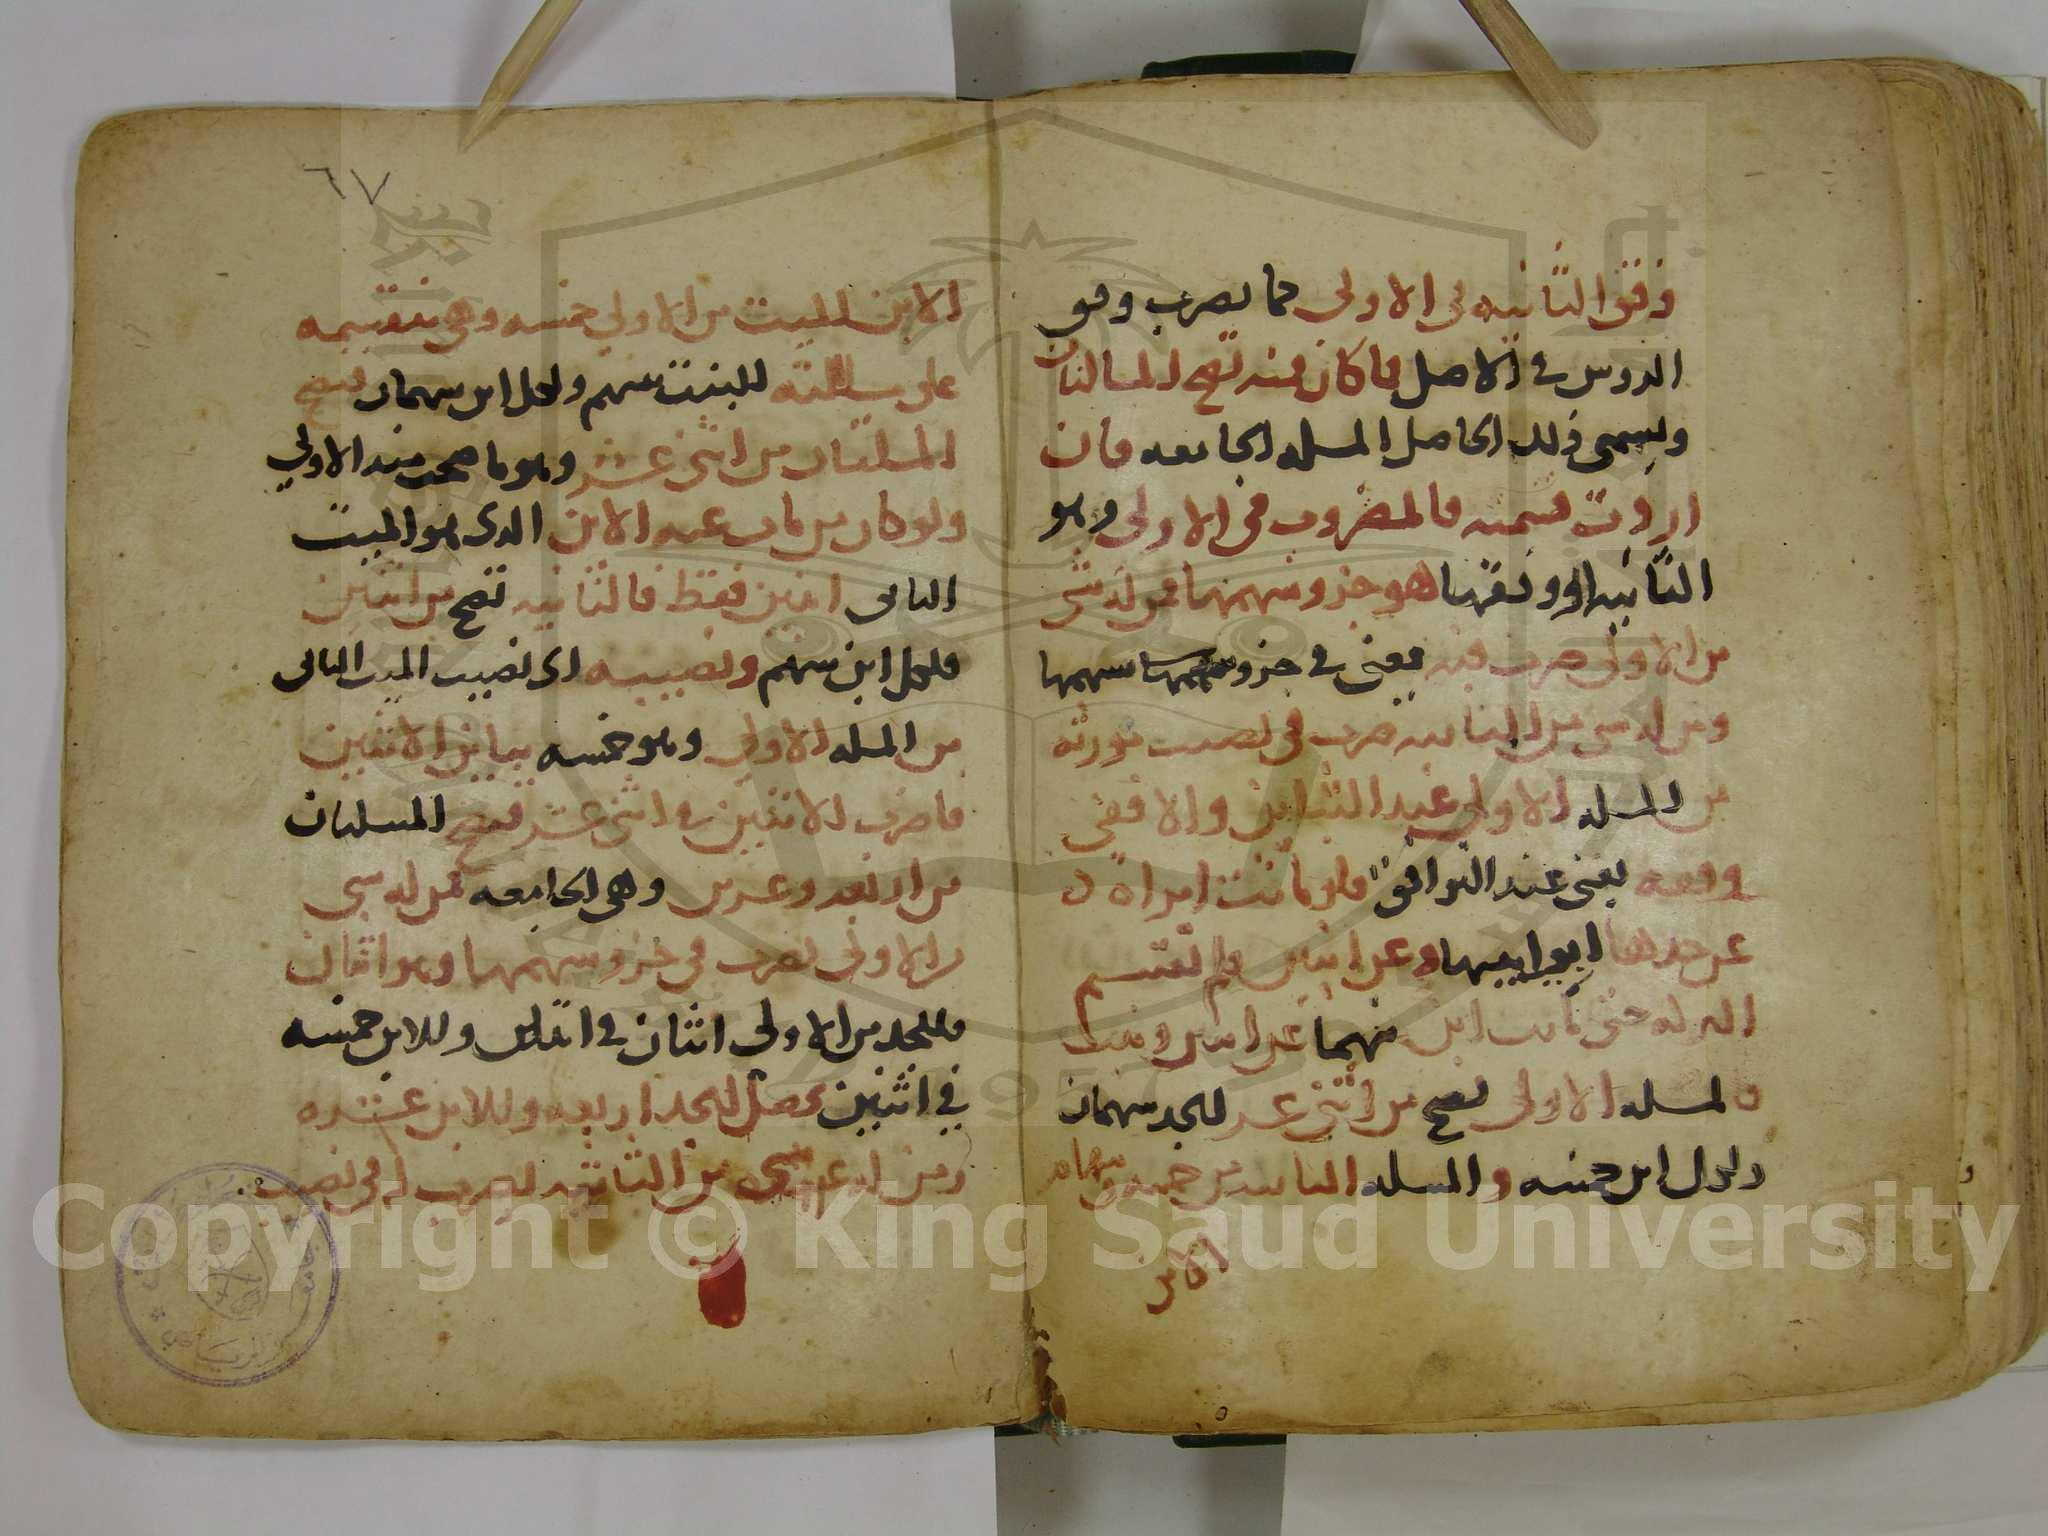 وفق الثانيه في الاولى كما تضرب وفق
الروس في الاصل فما كان فمنه تصح المسالتان
ويسمى ذلك الحاصل المسله الجامعه فان
اردت قسمته فالمضروب في الاولى وهو
الثانيه او وفقها هو جزو سهمها فمن له شي
من الاولى ضرب فيه يعني في جزو سهمها
ومن له شي من الثانيه ضرب في نصيب مورثه
من المسله الاولى عند التباين والا ففي
وفقه يعني عند التوافق فلو ماتت امراة
عن جدها ابي ابيها وعن ابنين ولم تقتسم
التركه حتى مات ابن منهما عن ابنين وبنت
فالمسله الاولى تصح من اثني عشر للجد سهمان
ولكل ابن خمسه والمسله الثانيه من خمسه وسهام
الابن
٦٧
الابن الميت من الاولى خمسه وهي منقسمه
على مسالته للبنت سهم ولكل ابن سهمان فتصح
المسلتان من اثني عشر وهو ما صحت منه الاولى
ولو كان من مات عنه الابن الذي هو الميت
الثاني ابنين فقط فالثانيه تصح من اثنين
فلكل ابن سهم ونصيبه اي نصيب الميت الثاني
من المسله الاولى وهو خمسه يباين الاثنين
فاضرب الاثنين في اثني عشر فتصح المسلتان
من اربعه وعشرين وهي الجامعه فمن له شي
من الاولى يضرب في جزو سهمها وهو اثنان
فللجد من الاولى اثنان في اثنين وللابن خمسه
في اثنين يحصل للجد اربعه وللابن عشره
ومن له شي من الثانيه يضرب له في نصيب
Copyright © King Saud University
1957